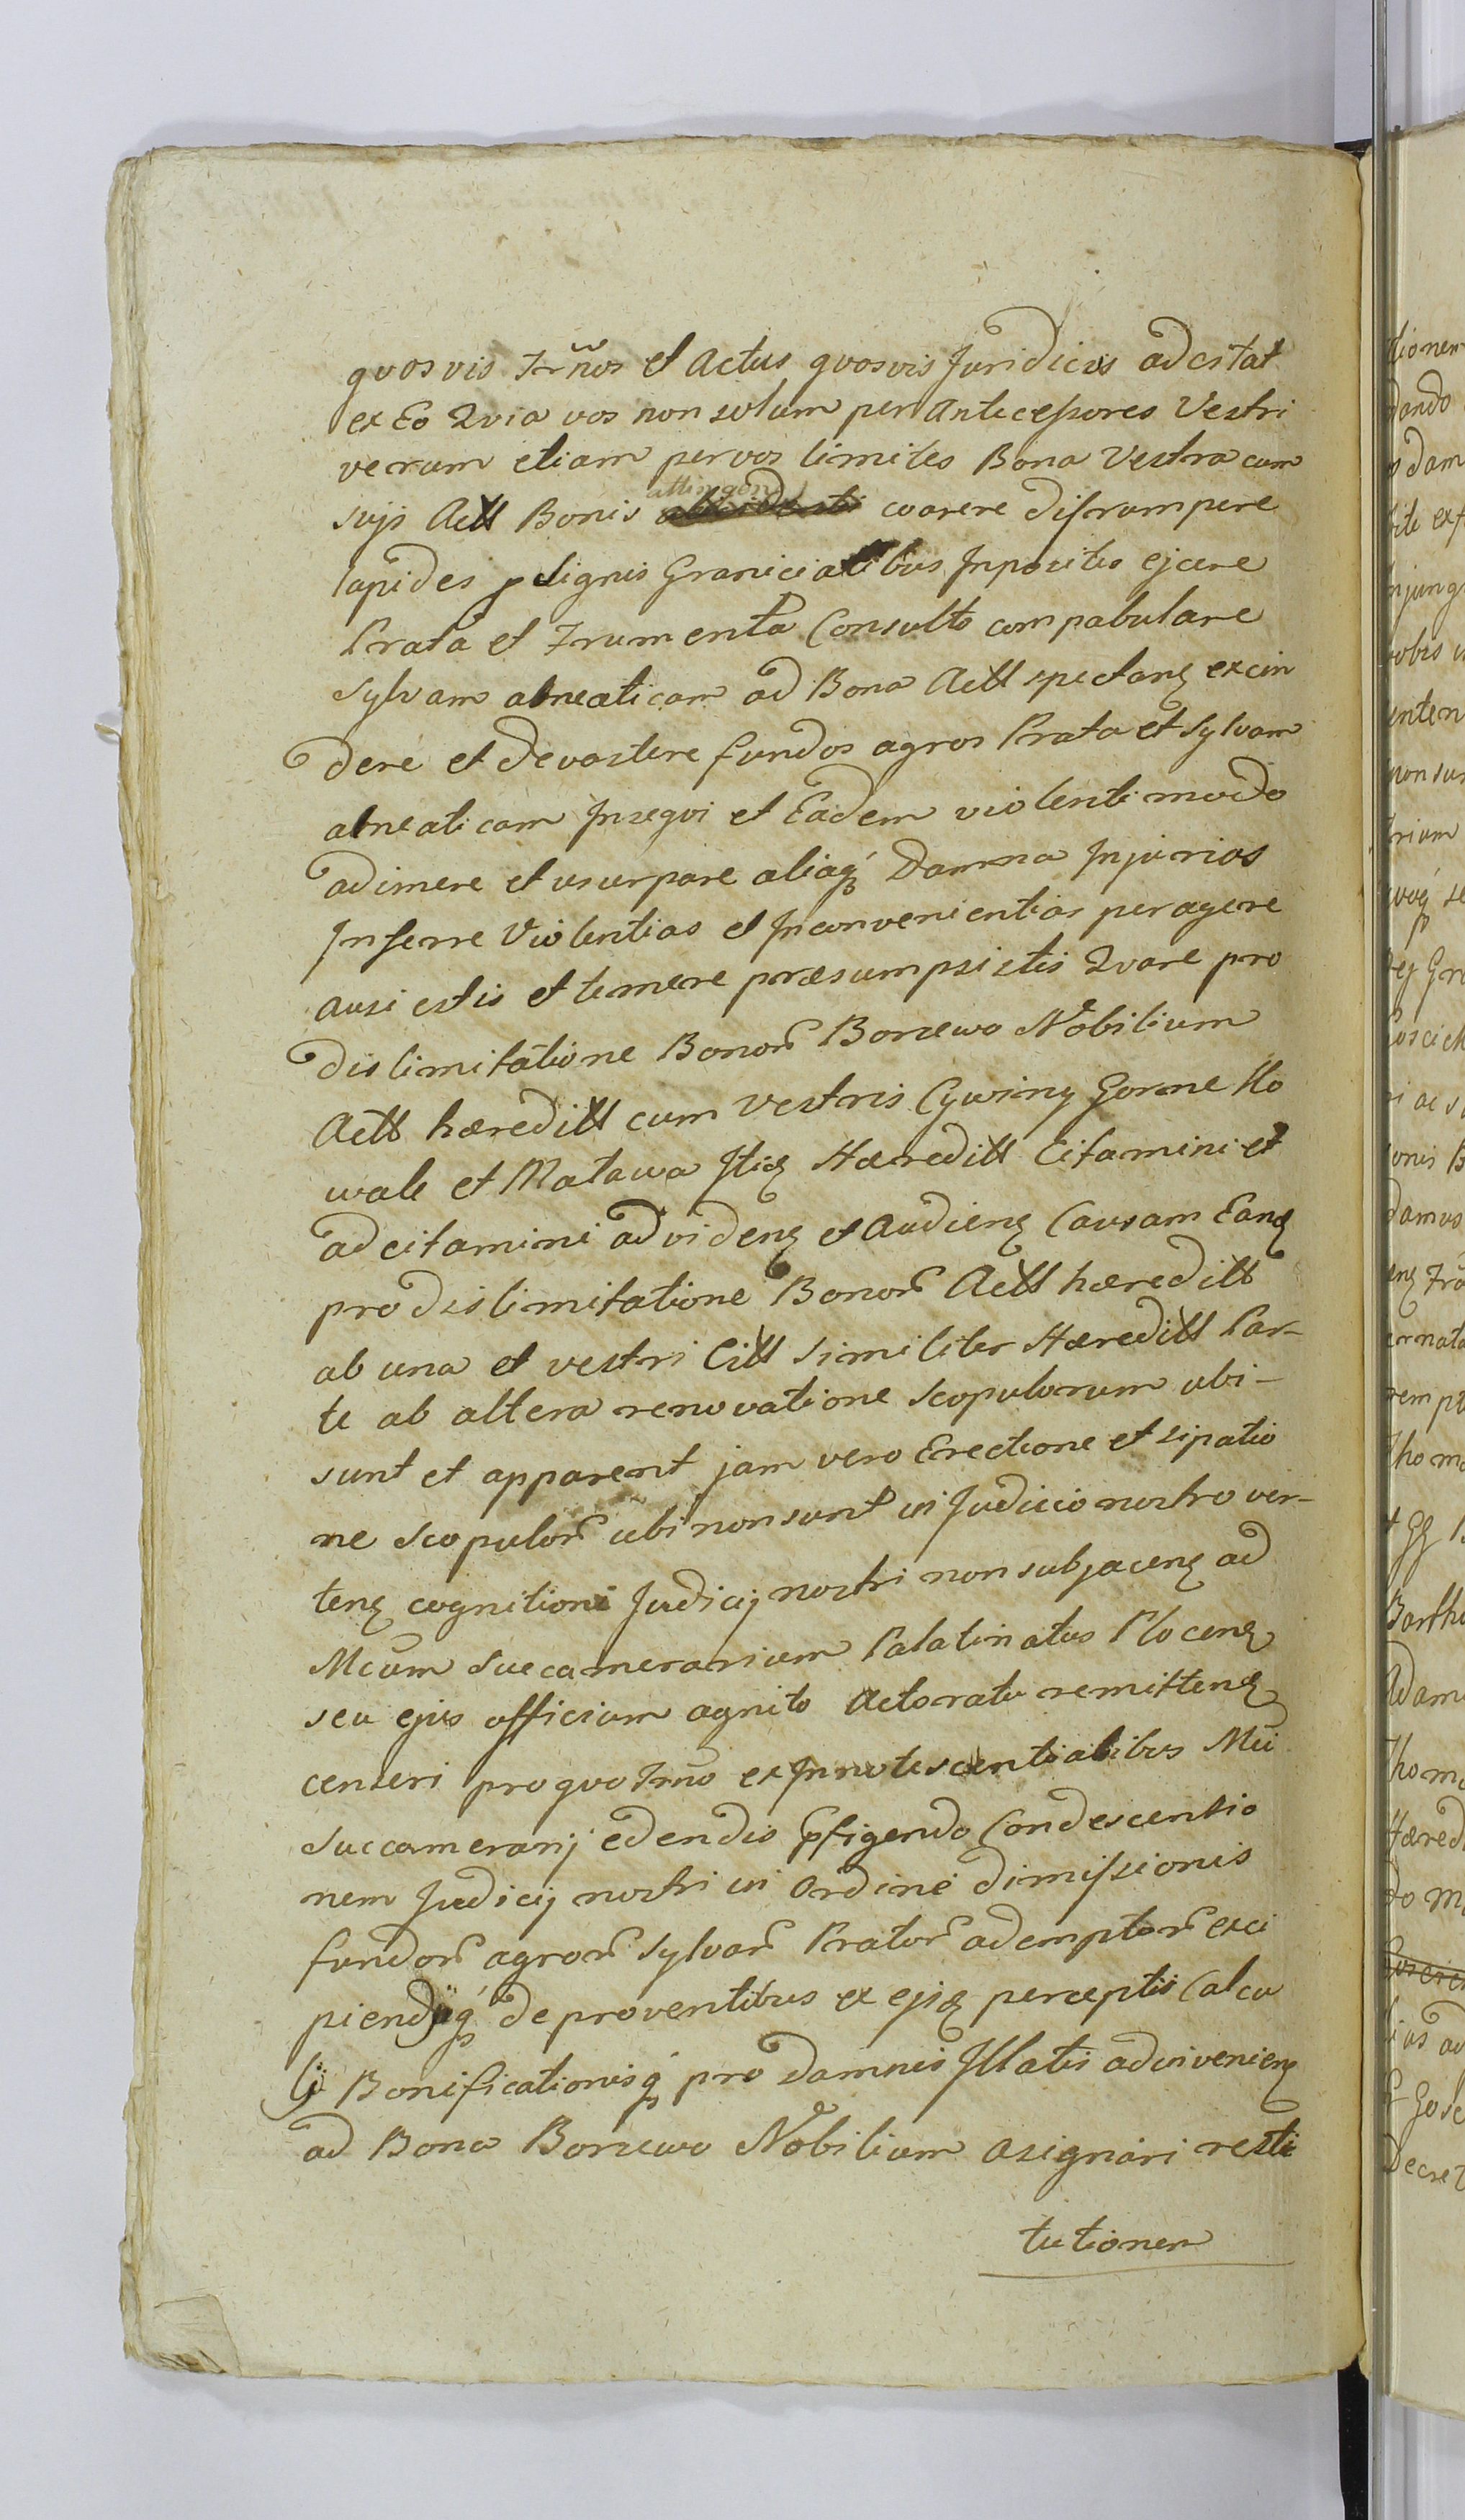 quosvis Trños et Actus quosvis Juridicos adcitat
ex Eo Quia vos non solum per Antecessores Vestri
verum etiam per vos limites Bona Vestra cum
suis Actt Bonis attingen coarere disrumpere
lapides p signis Granicialibus Inpositis ejcere
Prata et Frumenta Consulto compabulare
Sylvam alneaticam ad Bona Actt spectanę excin
dere et devastere fundos agros Prata et Sylvam
alneaticam Insequi et Eadem violenti modo
adimere et usurpare aliaqꝫ Damna Injurias
Inferre Violentias et Inconvenientias peragere
ausi estis et temere præsumpsistis Quare pro
dislimitatione Bonorꝫ Borzewo Nobilium
Actt hæreditt cum Vestris Cywiny Gorne Ko
wale et Malawa Itię Hæreditt Citamini et
adcitamini ad videnę et Audienę Causam Eanę
pro dislimitatione Bonorꝫ Actt hæreditt
ab una et vestri Citt Similiter Hæreditt Par-
te ab altera renovatione scopulorum ubi-
sunt et apparent jam vero Erectione et sipatio
ne scopulorꝫ ubi non sunt in Judicio nostro ver-
tenę cognitioni Judicij nostri non subjacenę ad
Mcum Succamerarium Palatinatus Plocenę
seu ejus officium agnito Actoratu remittenę
censeri pro quo Trño ex Innotescentialibus Mci
Succamerarij edendis pfigendo Condescensio
nem Judicij nostri in ordine dimissionis
fundorꝫ agrorꝫ Sylvarꝫ Pratorꝫ ademptorꝫ exci
piendijqꝫ de proventibus ex ejsę perceptis Calcu
lj Bonificationisqꝫ pro Damnis Illatis advivenienę
ad Bona Borzewo Nobilium asignari resti
tutionem